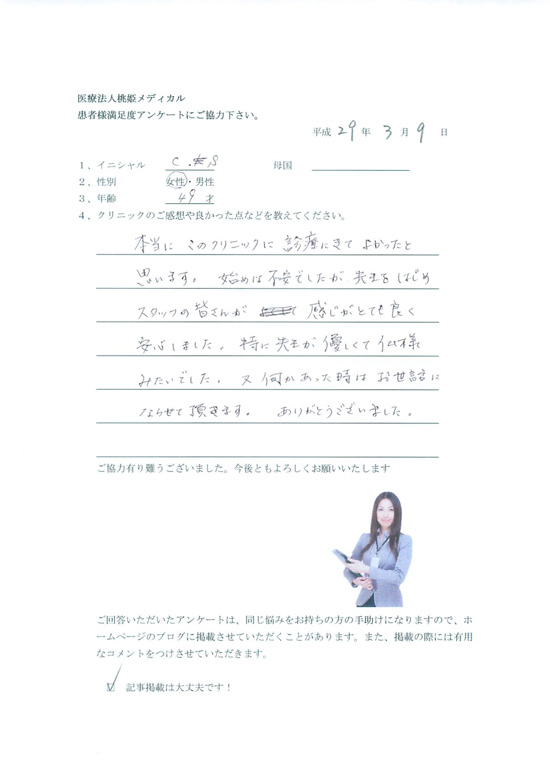 医療法人桃姫メディカル
患者様満足度アンケートにご協力下さい。
平成 29 年 3 月 9 日
1、イニシャル C. S 母国
2、性別 女性・男性
3、年齢 49 才
4、クリニックのご感想や良かった点などを教えてください。
本当に このクリニックに 診療にきて よかったと
思います。 始めは不安でしたが 先生をはじめ
スタッフの皆さんが 感じがとても良く
安心しました。 特に先生が優しくて仏様
みたいでした。 又何かあった時はお世話に
ならせて頂きます。 ありがとうございました。
ご協力有り難うございました。今後ともよろしくお願いいたします
ご回答いただいたアンケートは、同じ悩みをお持ちの方の手助けになりますので、ホ
ームページのブログに掲載させていただくことがあります。また、掲載の際には有用
なコメントをつけさせていただきます。
☑ 記事掲載は大丈夫です！